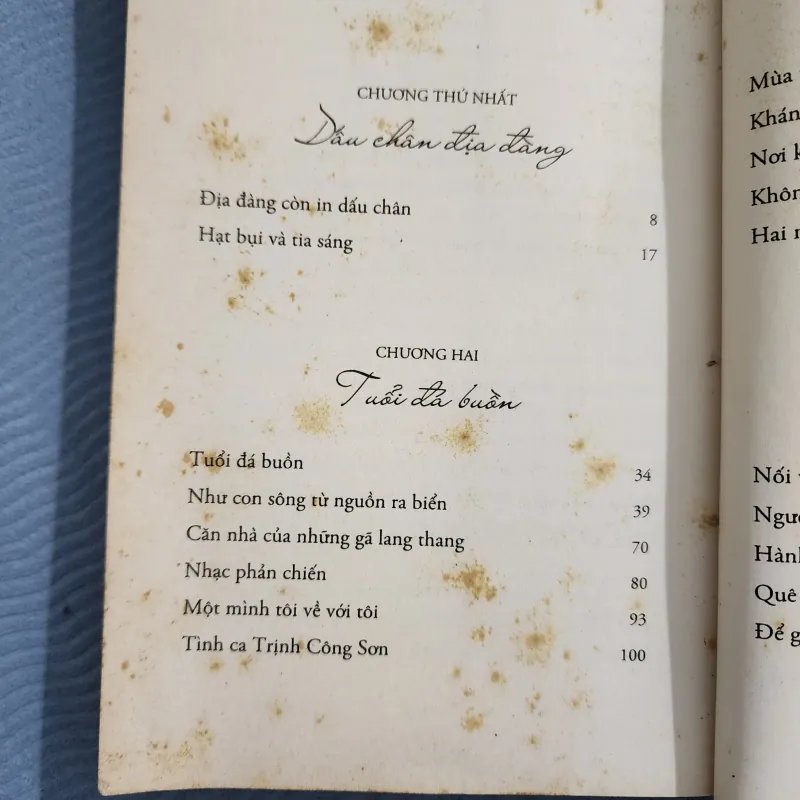 CHƯƠNG THỨ NHẤT
Dấu chân địa đàng
Địa đàng còn in dấu chân 8
Hạt bụi và tia sáng 17
CHƯƠNG HAI
Tuổi đá buồn
Tuổi đá buồn 34
Như con sông từ nguồn ra biển 39
Căn nhà của những gã lang thang 70
Nhạc phản chiến 80
Một mình tôi về với tôi 93
Tình ca Trịnh Công Sơn 100
Mùa
Nơi
Hai
Nối
Quê
Để